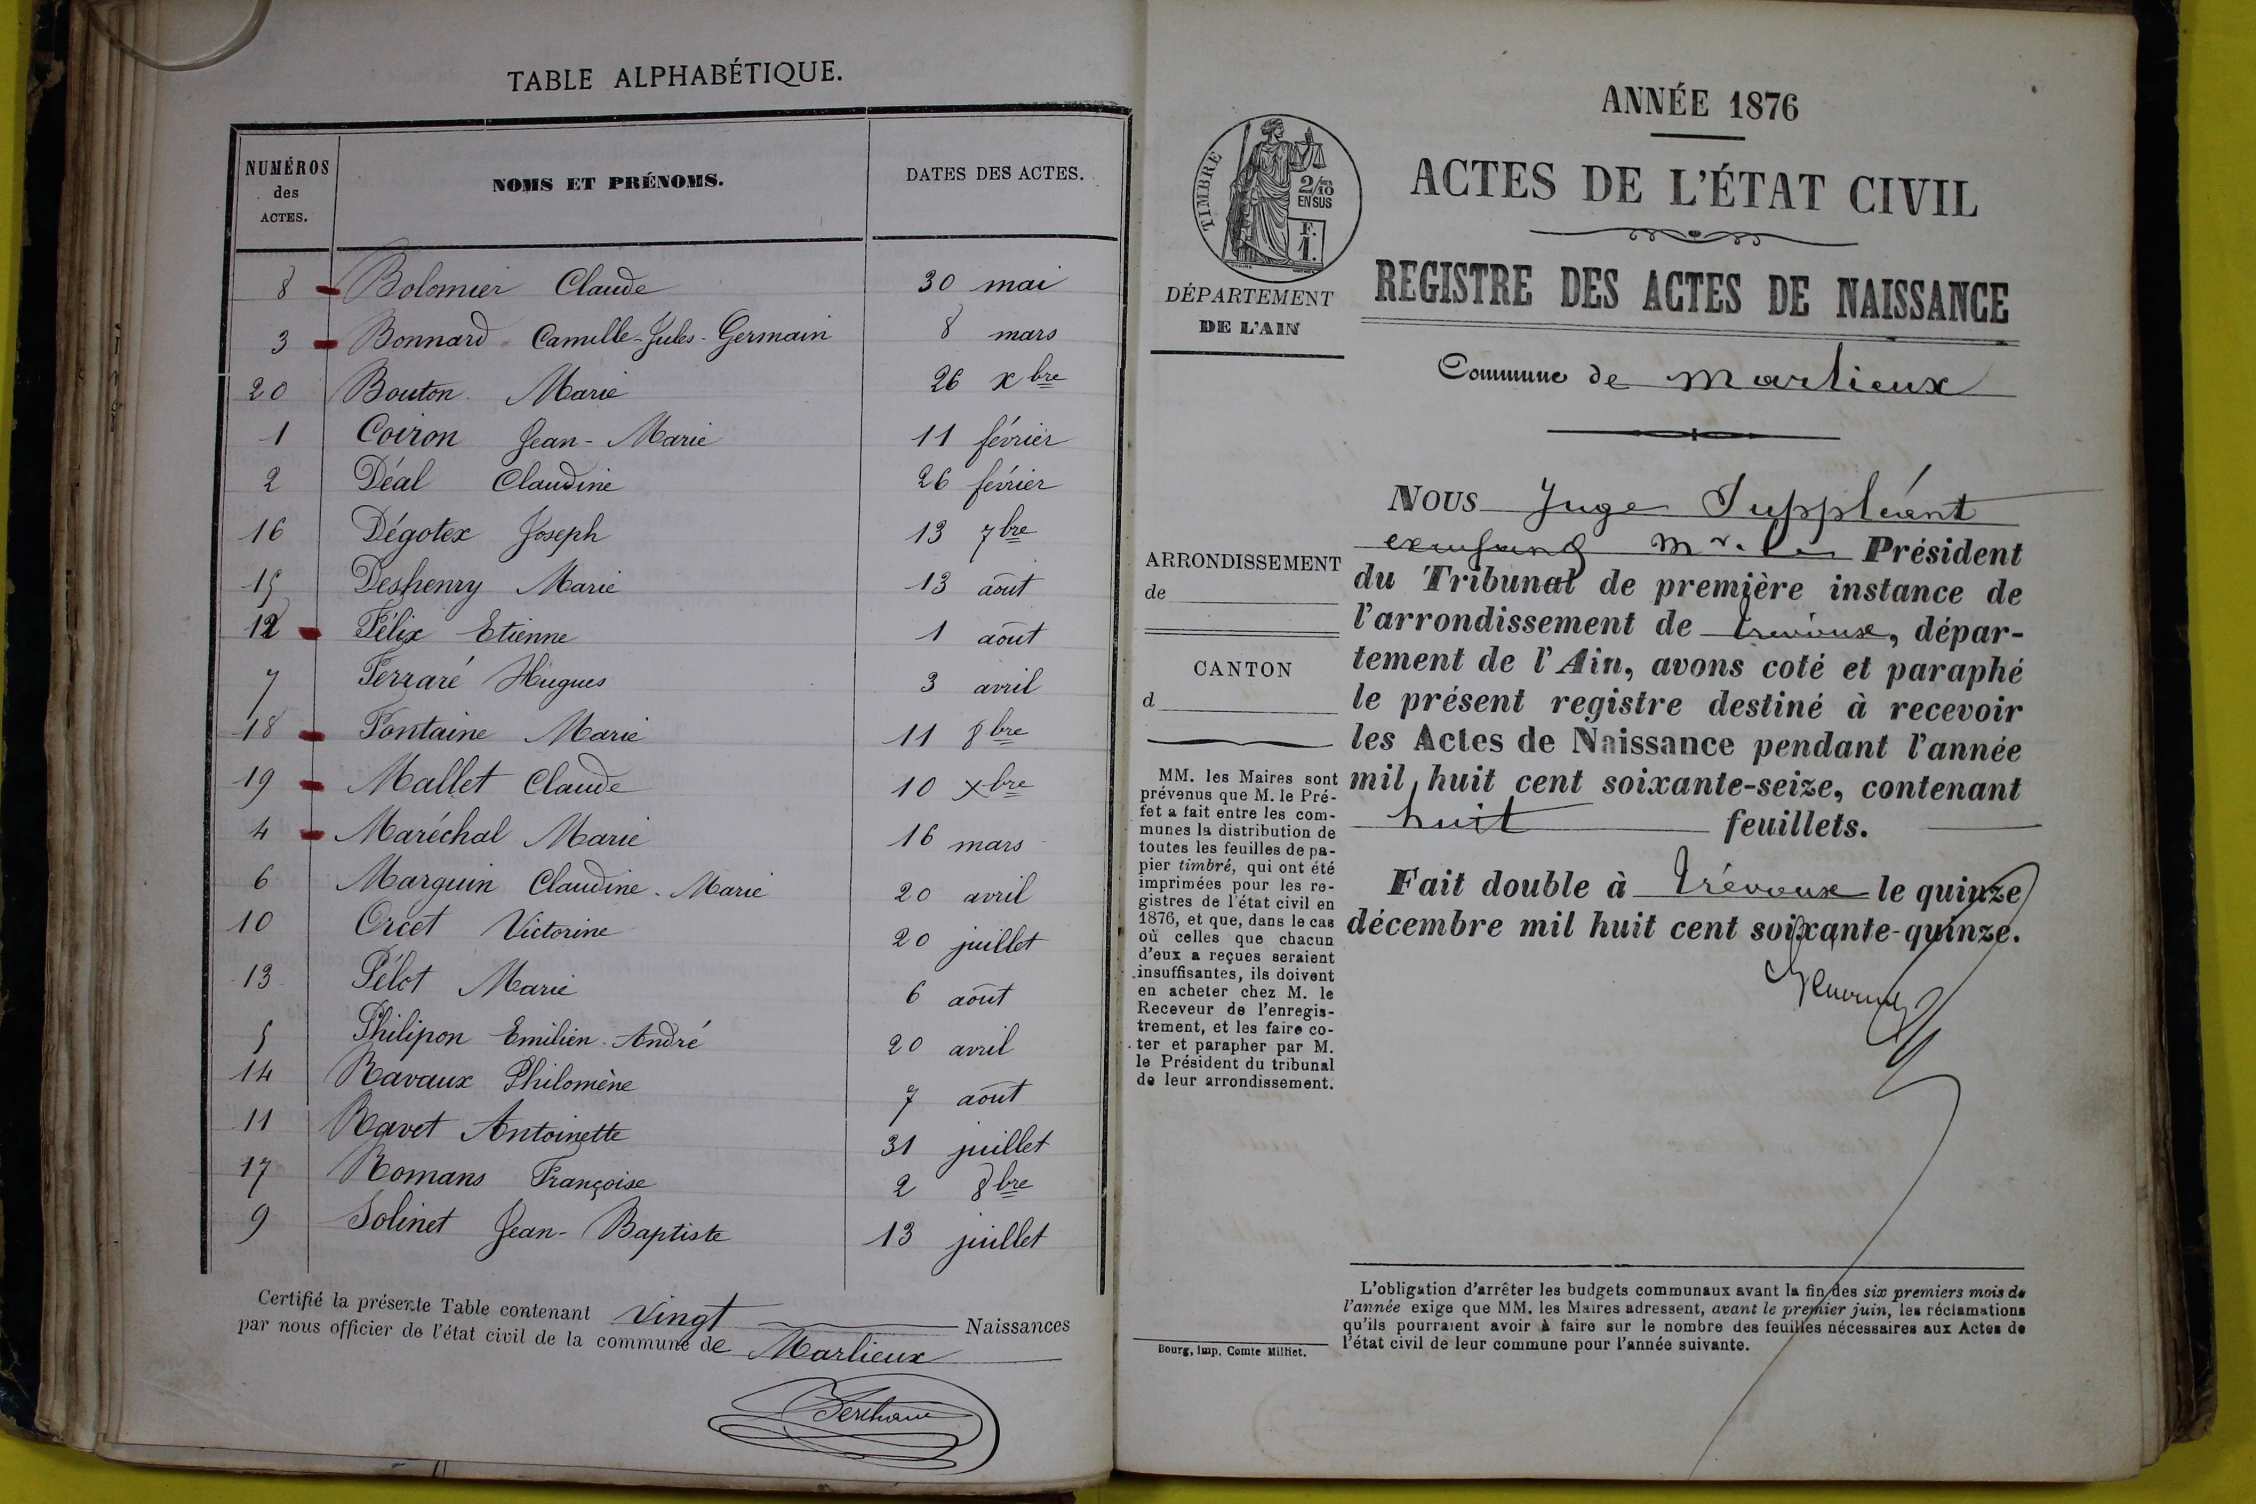 TABLE ALPHABÉTIQUE.
NUMÉROS des ACTES. NOMS ET PRÉNOMS. DATES DES ACTES.
8 Bolomier Claude 30 mai
3 Bonnard Camille-Jules-Germain 8 mars
20 Bouton Marie 26 xbre
1 Coiron Jean-Marie 11 février
2 Déal Claudine 26 février
16 Dégotex Joseph 13 7bre
15 Deshenry Marie 13 août
12 Félix Etienne 1 août
7 Ferraré Hugues 3 avril
18 Fontaine Marie 11 8bre
19 Mallet Claude 10 xbre
4 Maréchal Marie 16 mars
6 Marguin Claudine-Marie 20 avril
10 Orcet Victorine 20 juillet
13 Pélot Marie 6 août
5 Philipon Emilien-André 20 avril
14 Ravaux Philomène 7 août
11 Ravet Antoinette 31 juillet
17 Romans Françoise 2 8bre
9 Solinet Jean-Baptiste 13 juillet
Certifié la présente Table contenant vingt Naissances
par nous officier de l'état civil de la commune de Marlieux
ANNÉE 1876
ACTES DE L'ÉTAT CIVIL
REGISTRE DES ACTES DE NAISSANCE
Commune de Marlieux
TIMBRE
2/10
EN SUS
F.
1.
DÉPARTEMENT
DE L'AIN
ARRONDISSEMENT
de
CANTON
d
MM. les Maires sont
prévenus que M. le Pré-
fet a fait entre les com-
munes la distribution de
toutes les feuilles de pa-
pier timbré, qui ont été
imprimées pour les re-
gistres de l'état civil en
1876, et que, dans le cas
où celles que chacun
d'eux a reçues seraient
insuffisantes, ils doivent
en acheter chez M. le
Receveur de l'enregis-
trement, et les faire co-
ter et parapher par M.
le Président du tribunal
de leur arrondissement.
Bourg, imp. Comte Milliet.
NOUS Juge Suppléant
Mr. le Président
du Tribunal de première instance de
l'arrondissement de Trévoux, dépar-
tement de l'Ain, avons coté et paraphé
le présent registre destiné à recevoir
les Actes de Naissance pendant l'année
mil huit cent soixante-seize, contenant
huit feuillets.
Fait double à Trévoux le quinze
décembre mil huit cent soixante-quinze.
L'obligation d'arrêter les budgets communaux avant la fin des six premiers mois de
l'année exige que MM. les Maires adressent, avant le premier juin, les réclamations
qu'ils pourraient avoir à faire sur le nombre des feuilles nécessaires aux Actes de
l'état civil de leur commune pour l'année suivante.